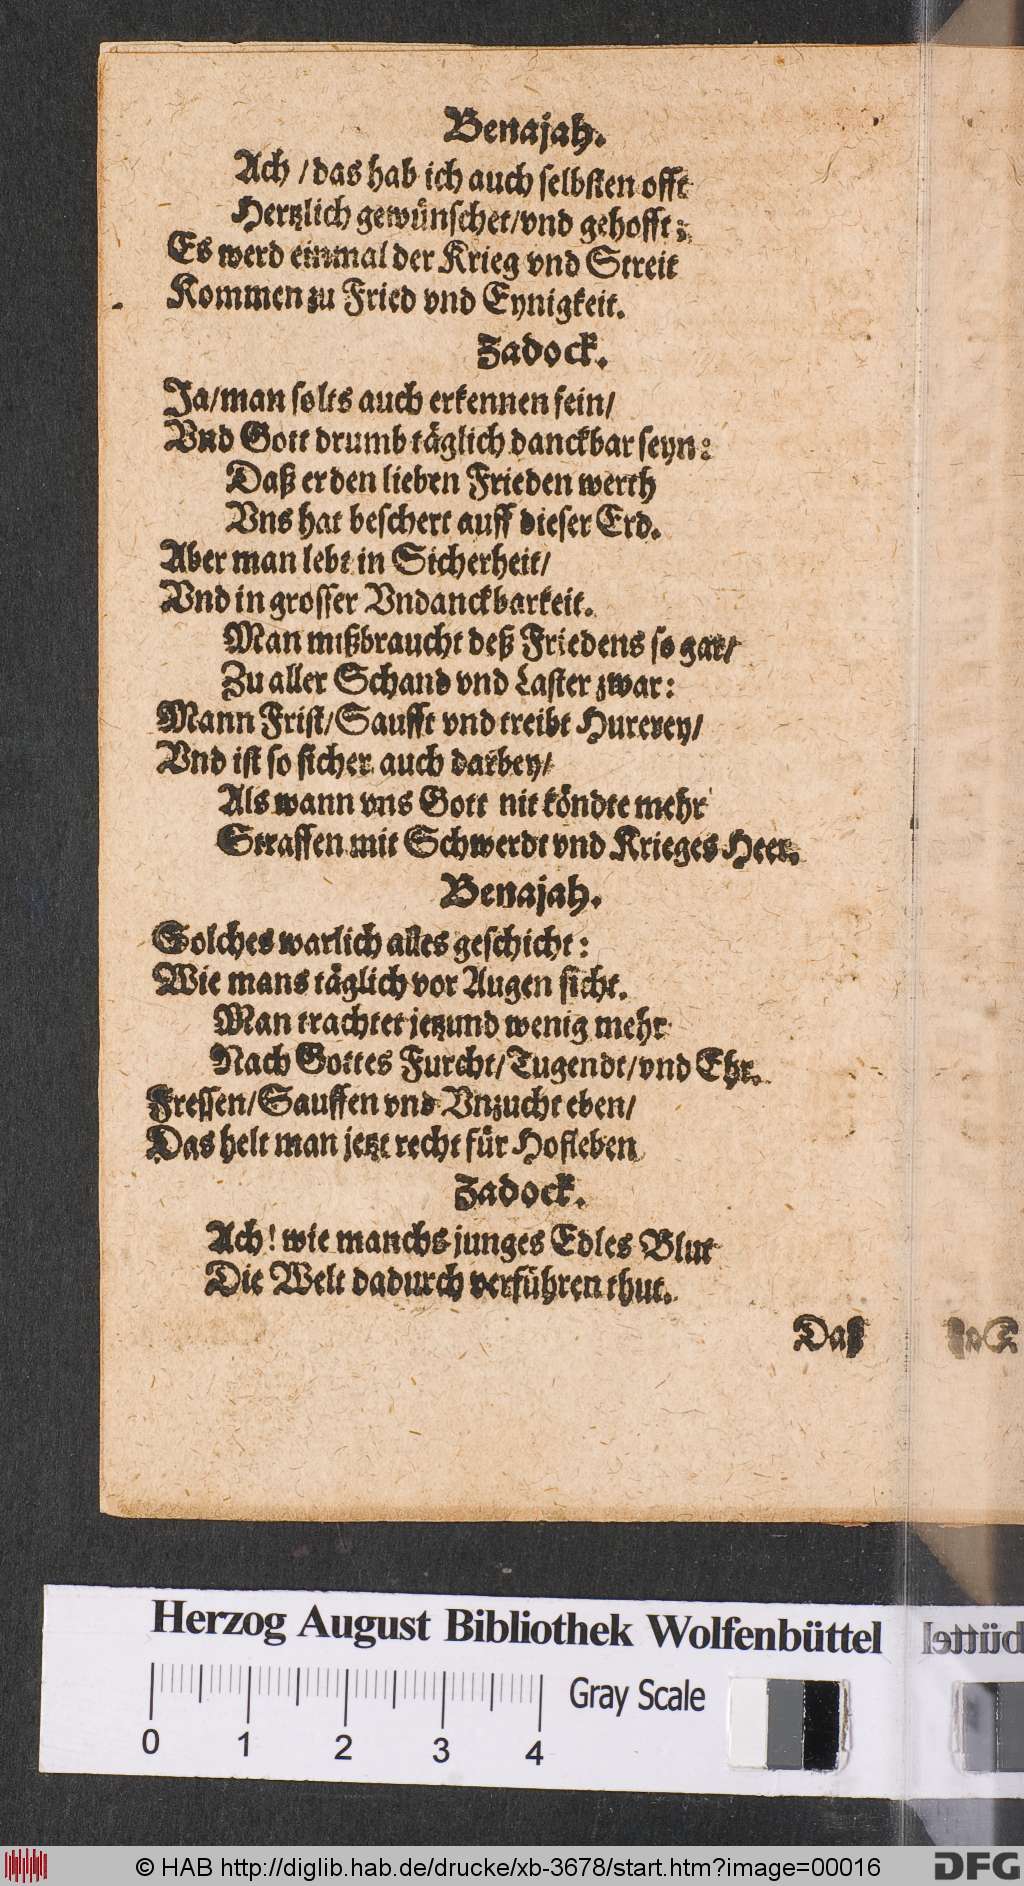 Benajah.
Ach / das hab ich auch selbsten offt
Hertzlich gewünschet/vnd gehofft:
Es werd einmal der Krieg vnd Streit
Kommen zu Fried vnd Eynigkeit.
Zadock.
Ja/man solts auch erkennen fein/
Vnd Gott drumb täglich danckbar seyn:
Daß er den lieben Frieden werth
Vns hat beschert auff dieser Erd.
Aber man lebt in Sicherheit/
Vnd in grosser Vndanckbarkeit.
Man mißbraucht deß Friedens so gar/
Zu aller Schand vnd Laster zwar:
Mann Frist/Saufft vnd treibt Hurerey/
Vnd ist so sicher auch darbey/
Als wann vns Gott nit köndte mehr
Straffen mit Schwerdt vnd Krieges Heer.
Benajah.
Solches warlich alles geschicht:
Wie mans täglich vor Augen sicht.
Man trachtet jetzund wenig mehr
Nach Gottes Furcht/Tugendt/vnd Ehr.
Fressen/Sauffen vnd Vnzucht eben/
Das helt man jetzt recht für Hofleben
Zadock.
Ach! wie manchs junges Edles Blut
Die Welt dadurch verführen thut.
Daß
Herzog August Bibliothek Wolfenbüttel
Gray Scale
0 1 2 3 4
© HAB http://diglib.hab.de/drucke/xb-3678/start.htm?image=00016
DFG